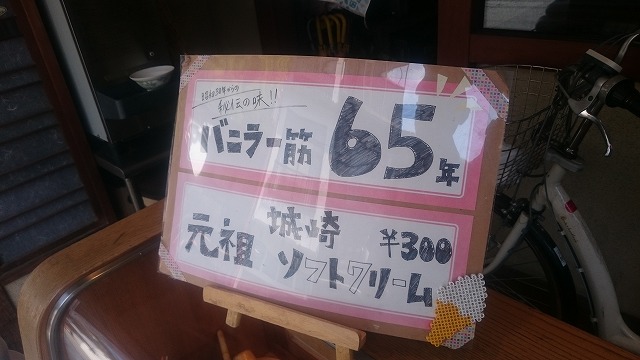 昭和30年からの
秘伝の味!!
バニラ一筋 65年
元祖 城崎 ¥300
ソフトクリーム